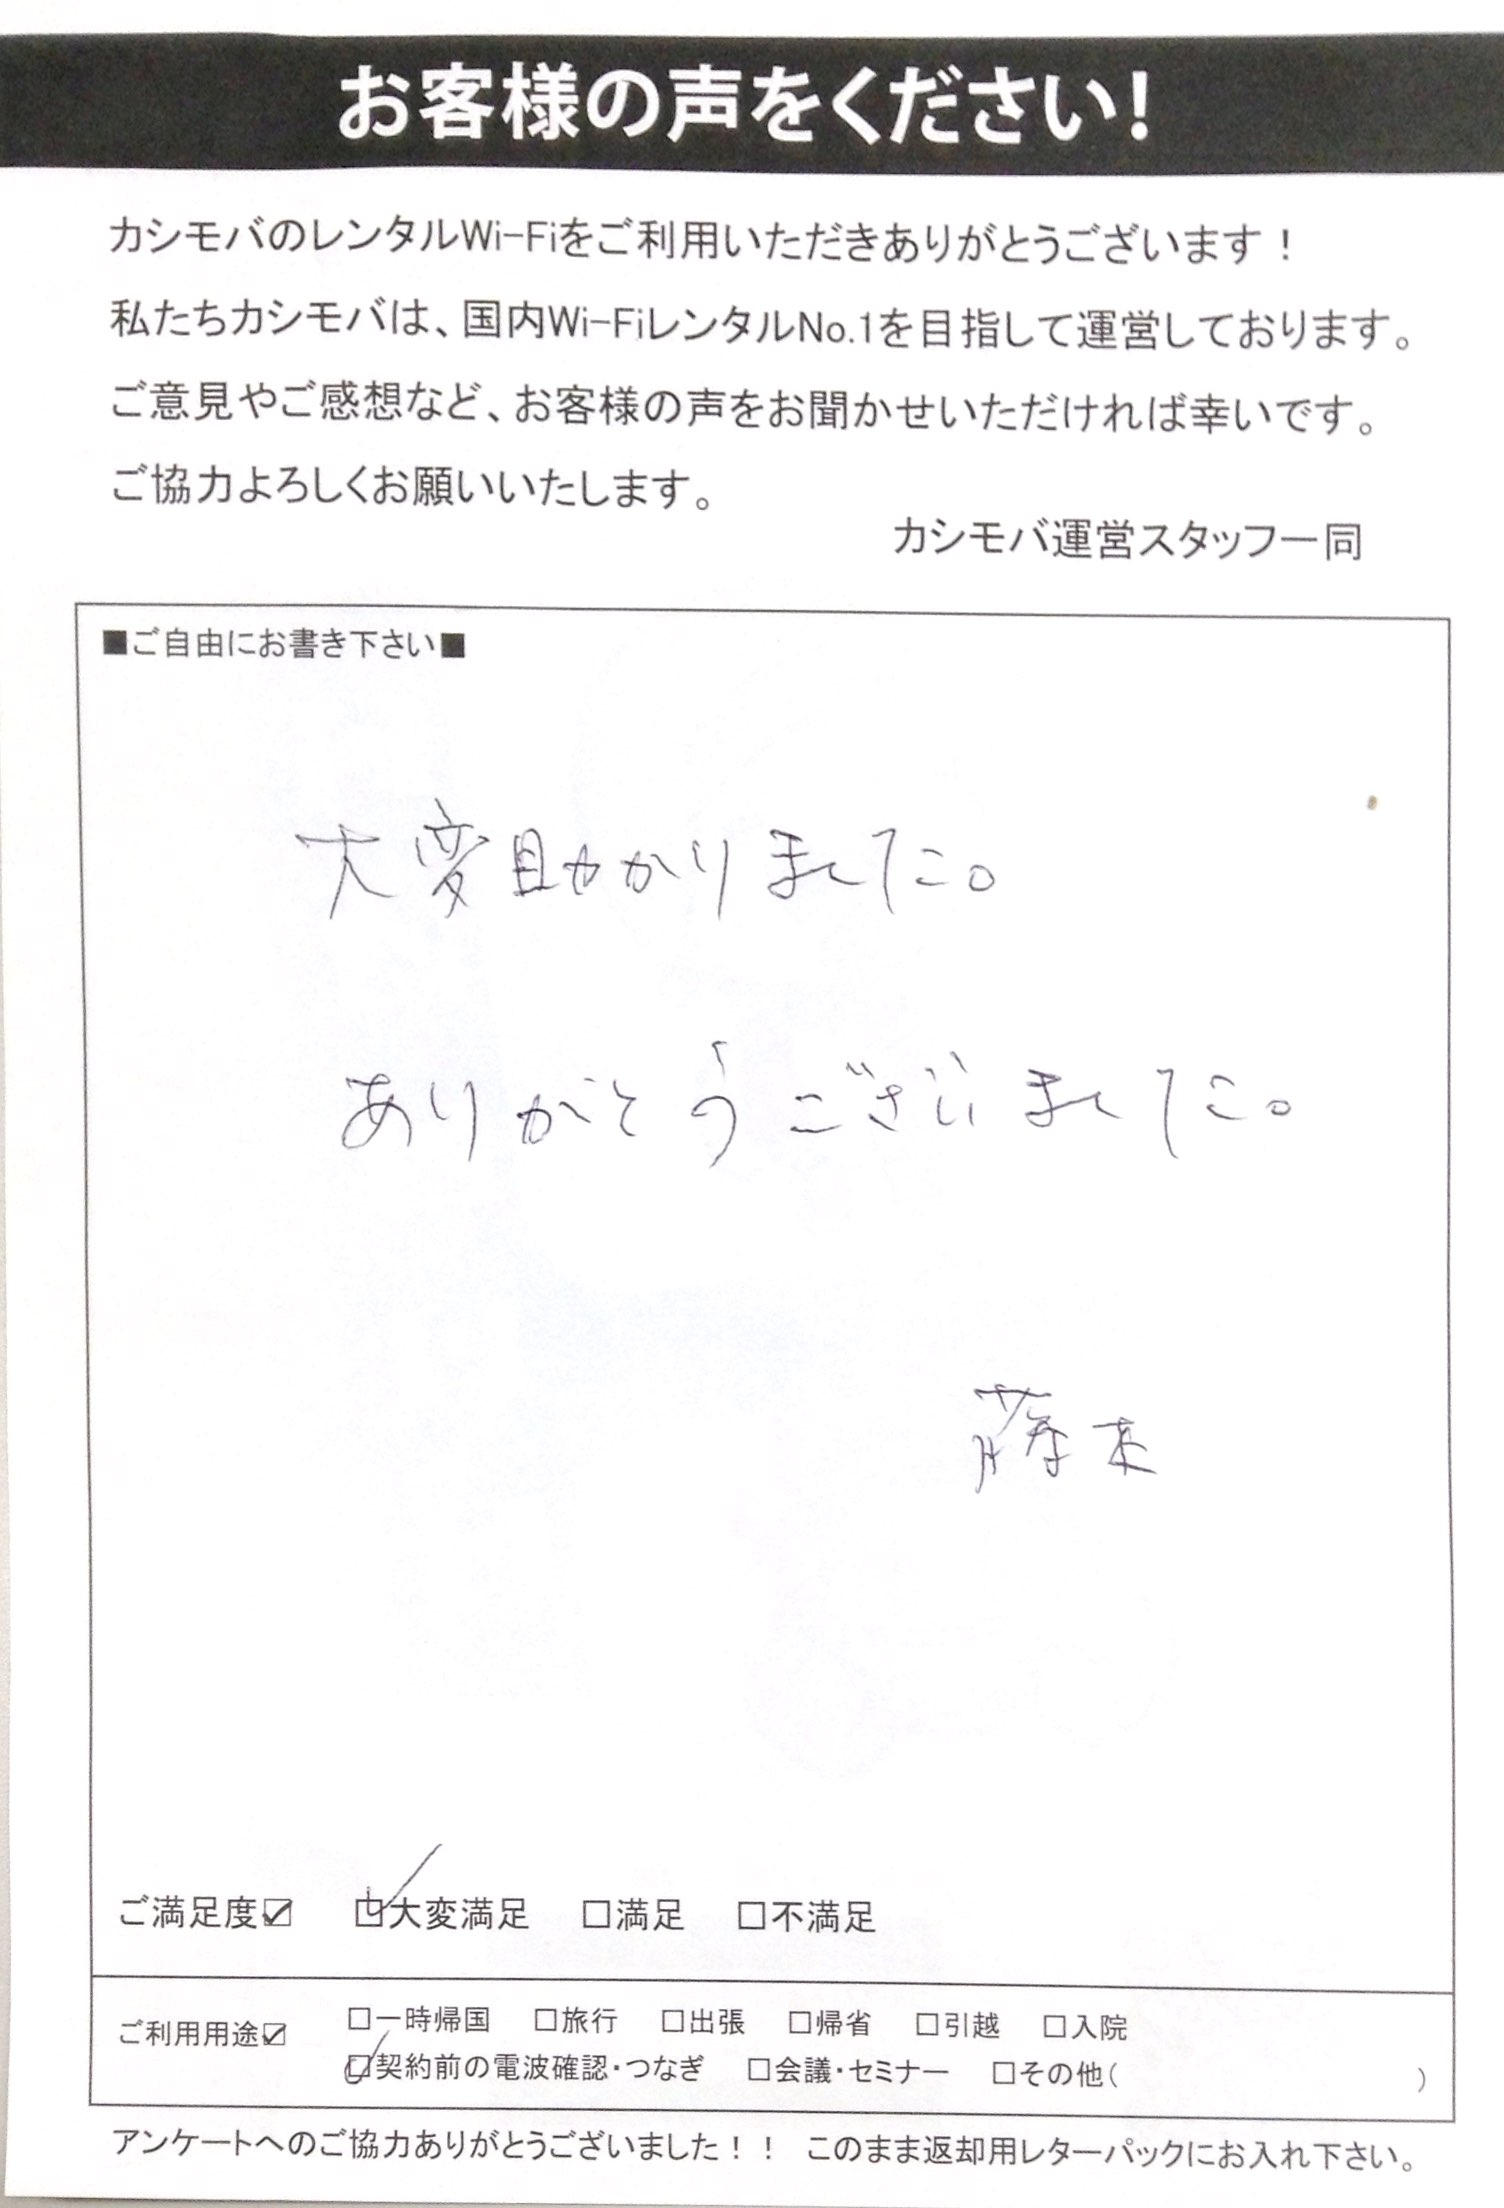 お客様の声をください!
カシモバのレンタルWi-Fiをご利用いただきありがとうございます！
私たちカシモバは、国内Wi-FiレンタルNo.1を目指して運営しております。
ご意見やご感想など、お客様の声をお聞かせいただければ幸いです。
ご協力よろしくお願いいたします。
カシモバ運営スタッフ一同
■ご自由にお書き下さい■
大変助かりました。
ありがとうございました。
藤本
ご満足度☑ ☑大変満足 □満足 □不満足
ご利用用途☑ □一時帰国 □旅行 □出張 □帰省 □引越 □入院
☑契約前の電波確認・つなぎ □会議・セミナー □その他( )
アンケートへのご協力ありがとうございました！！ このまま返却用レターパックにお入れ下さい。